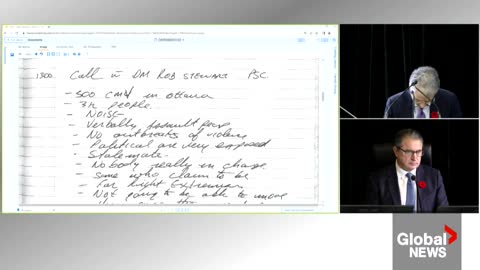 1300. Call w DM ROB STEWART PSC.
- 500 CMV in Ottawa
- 3k people.
- NOISE
- Verbally assault
- No outbreaks of violence
- Political are very exposed
- Stalemate
- Nobody really in charge
- Some who claim to be
- Far Right Extremism
- Not going to be able to move
Global
NEWS